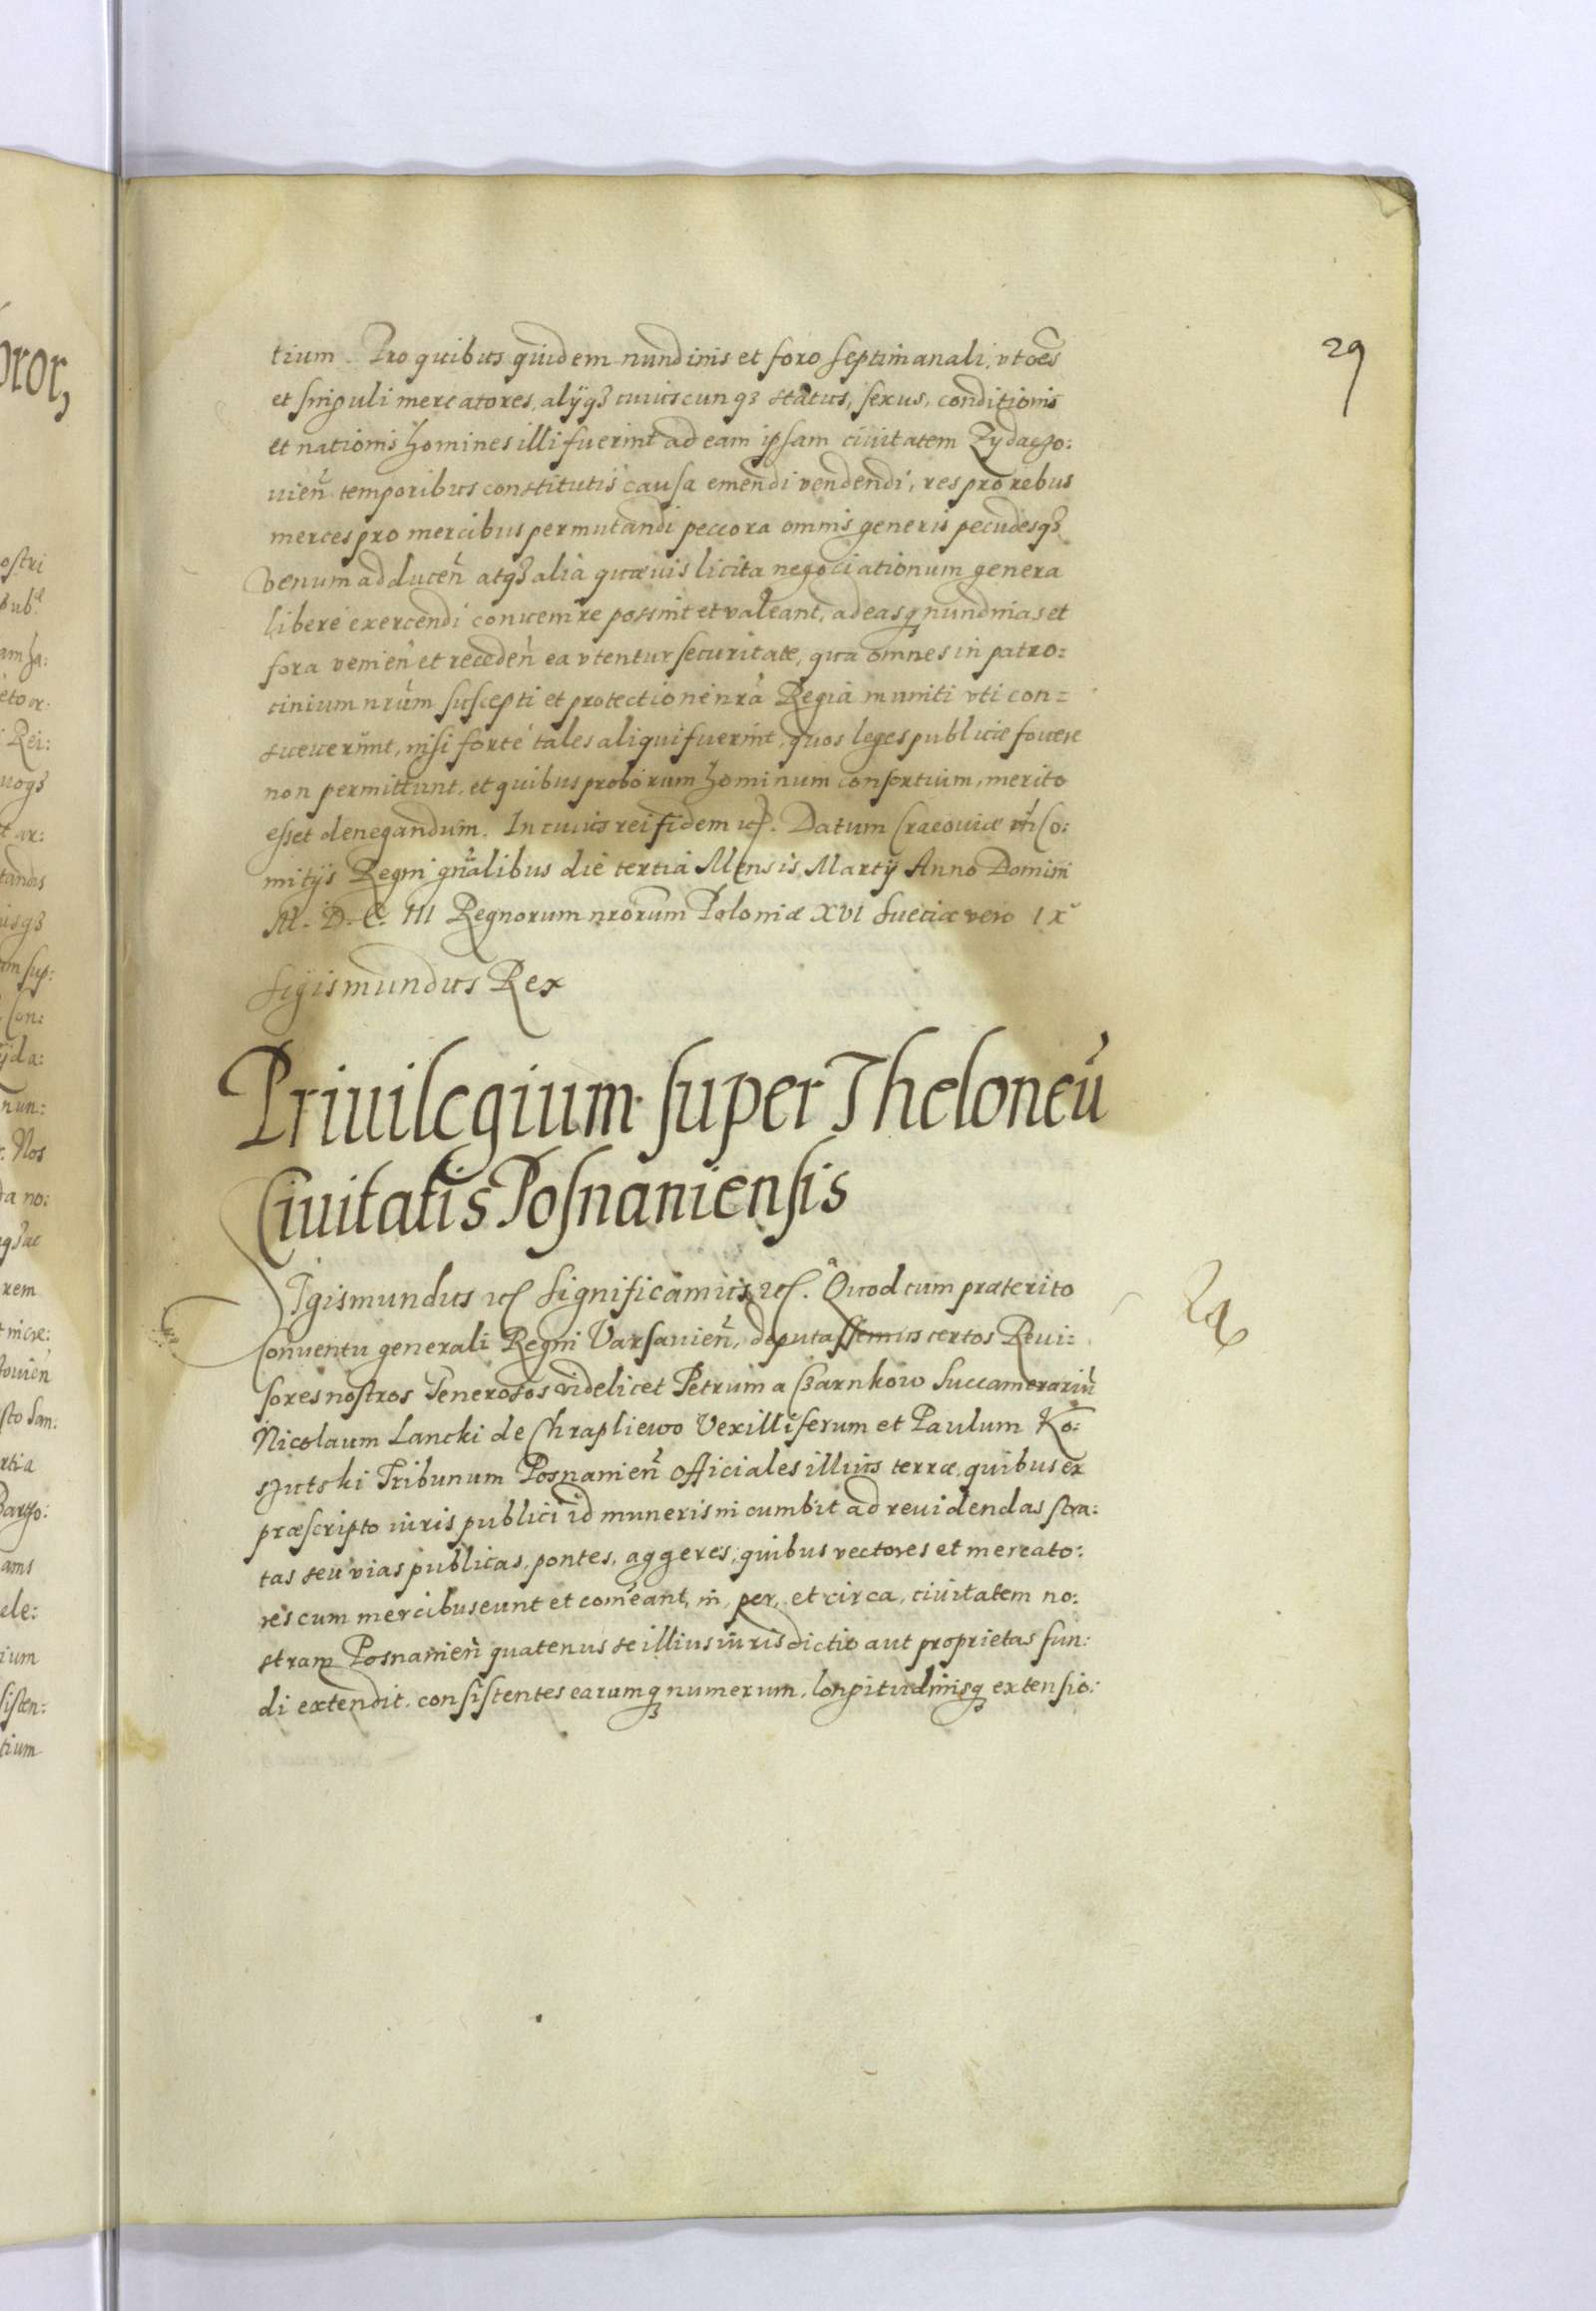 29
tium. Pro quibus quidem nundinis et foro septimanali, vt oēs
et singuli mercatores, alijqȝ cuiuscunqȝ status, sexus, conditionis
et nationis homines illi fuerint ad eam ipsam ciuitatem Zydaczo:
uien̄ temporibus constitutis causa emendi vendendi, res pro rebus
merces pro mercibus permutandi peccora omnis generis pecudesqȝ
venum adducen̄ atqȝ alia quæuis licita negociationum genera
libere exercendi conuenire possint et valeant, ad easqȝ nundinas et
fora venien̄ et receden̄ ea vtentur securitate, qua omnes in patro=
cinium nr̄um suscepti et protectione nr̄a Regia muniti vti con=
sueuerunt, nisi forte tales aliqui fuerint, quos leges publicæ fouere
non permittunt, et quibus proborum hominum consortium, merito
esset denegandum. In cuius rei fidem etc. Datum Cracouiæ in Co:
mitijs Regni gn̄alibus die tertia Mensis Martij Anno Domini
M. D. C. III Regnorum nrorum Poloniæ XVI Sueciæ vero IX
Sigismundus Rex
Priuilegium super Theloneū
Ciuitatis Posnaniensis
Sigismundus etc Significamus etc. Quod cum præterito
Conuentu generali Regni Varsauien̄, deputassemus certos Reui:
sores nostros Generosos videlicet Petrum a Czarnkow Succamerariū
Nicolaum Lancki de Chrapliewo Vexilliferum et Paulum Ko:
szutski Tribunum Posnanien̄ officiales illius terræ, quibus ex
præscripto iuris publici id muneris incumbit ad reuidendas stra:
tas seu vias publicas, pontes, aggeres, quibus vectores et mercato:
res cum mercibus eunt et comeant, in, per, et circa, ciuitatem no:
stram Posnanien̄ quatenus se illius iurisdictio aut proprietas fun:
di extendit, consistentes earumqȝ numerum, longitudinisqȝ extensio: